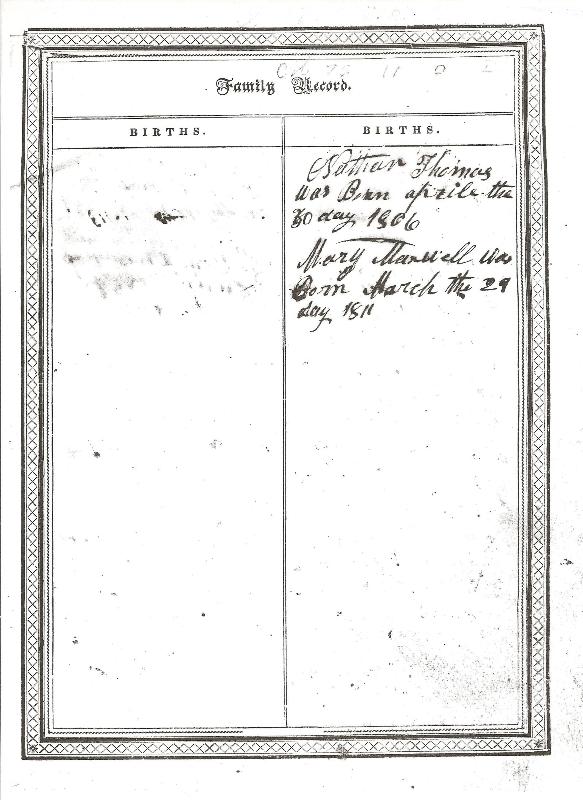 Family Record.
BIRTHS.
BIRTHS.
Nathan Thomas
was Born aprile the
30 day 1806
Mary Maxwell was
Born March the 29
day 1811